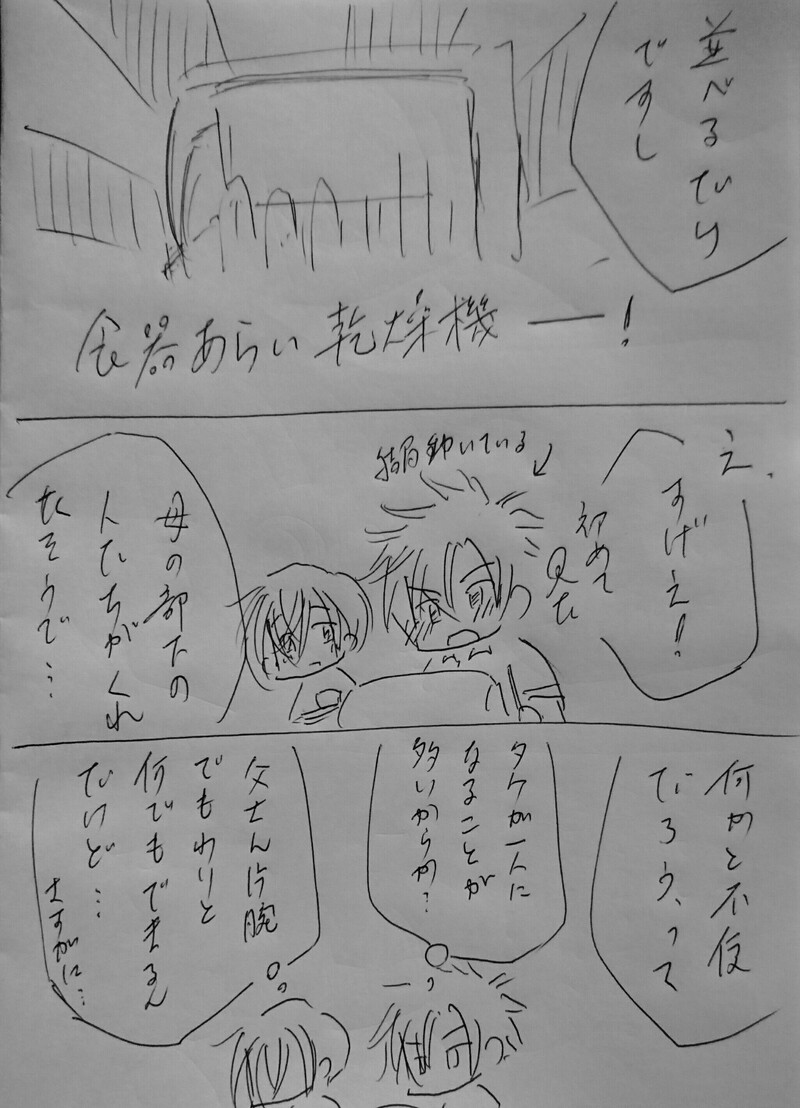 並べるだけ
ですし
食器あらい乾燥機ー!
え、
すげえ!
初めて
見た
結局動いている
母の部下の
人たちがくれ
たそうで…
何かと不便
だろう、って
タケが一人に
なることが
多いからか?
父さん片腕
でもわりと
何でもできるん
だけど…
さすがに…